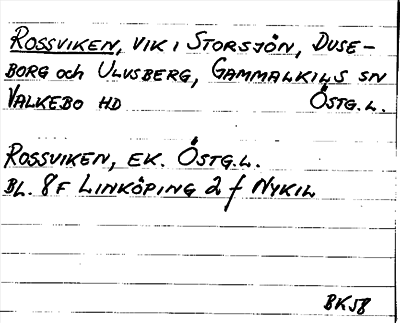 ROSSVIKEN, VIK I STORSJÖN, DUSE-
BORG och ULVSBERG, GAMMALKILS SN
VALKEBO HD ÖSTG.L.
ROSSVIKEN, EK. ÖSTG.L.
BL. 8F LINKÖPING 2 f NYKIL
BKJB